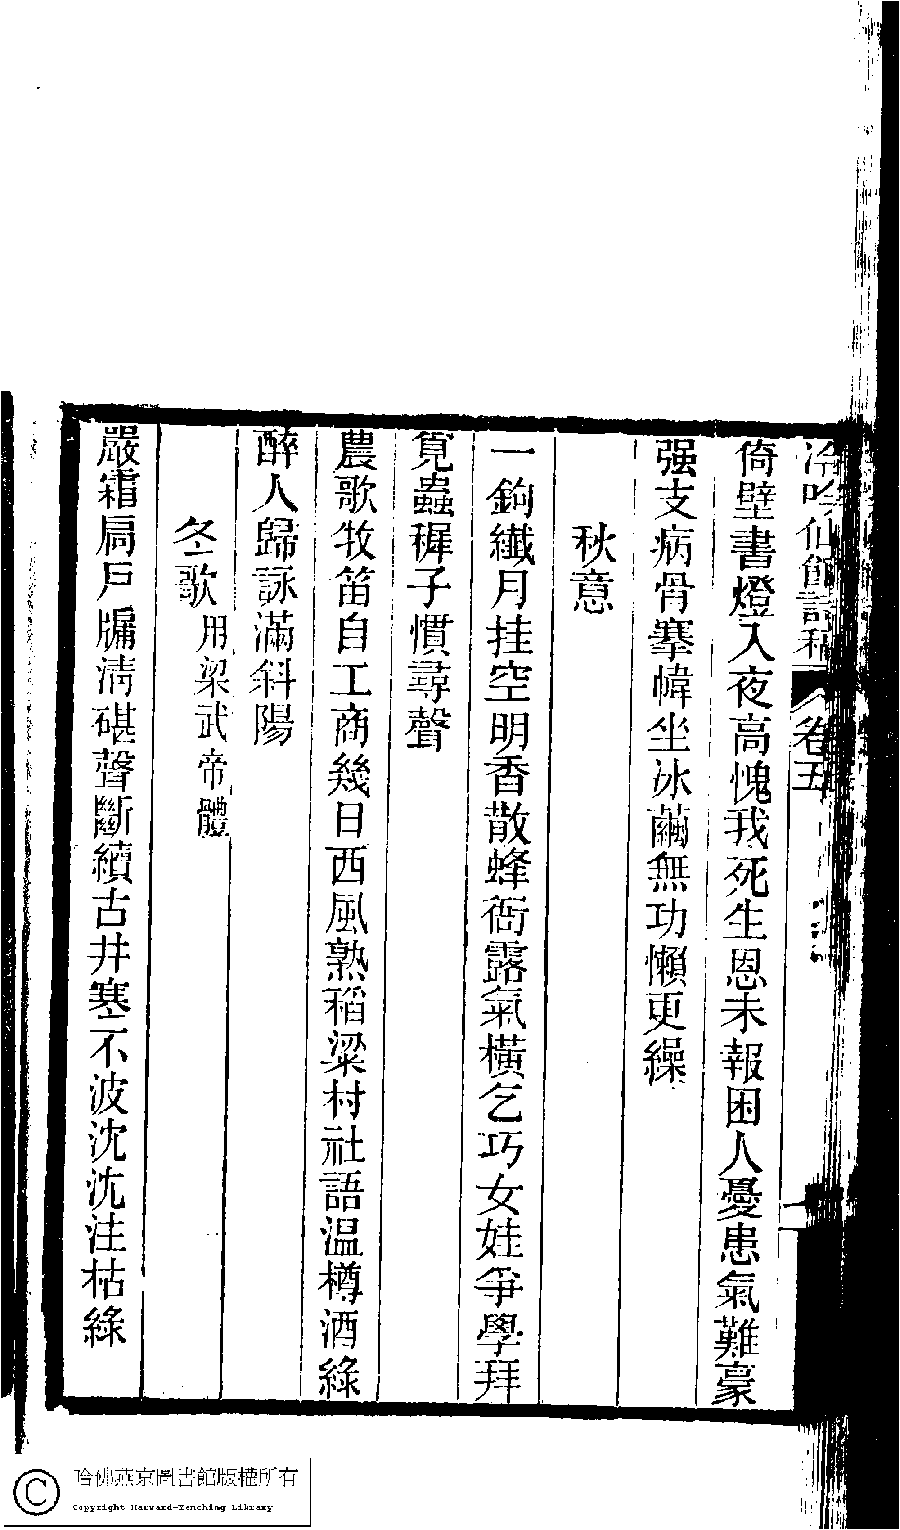 冷吟仙館詩稿 卷五
倚壁書燈入夜高愧我死生恩未報困人憂患氣難豪
强支病骨搴幃坐冰繭無功懶更繰
秋意
一鉤纖月挂空明香散蜂衙露氣橫乞巧女娃爭學拜
覓蟲稺子慣尋聲
農歌牧笛自工商幾日西風熟稻粱村社語溫樽酒綠
醉人歸詠滿斜陽
冬歌用梁武帝體
嚴霜扃戶牖清碪聲斷續古井寒不波沈沈洼枯綠
哈佛燕京圖書館版權所有
Copyright Harvard-Yenching Library